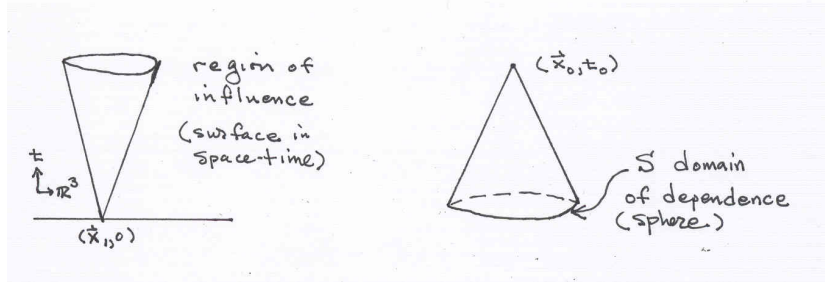 region of
influence
(surface in
space-time)
t
ℝ³
(x⃗₁,0)
(x⃗₀,t₀)
S domain
of dependence
(sphere)